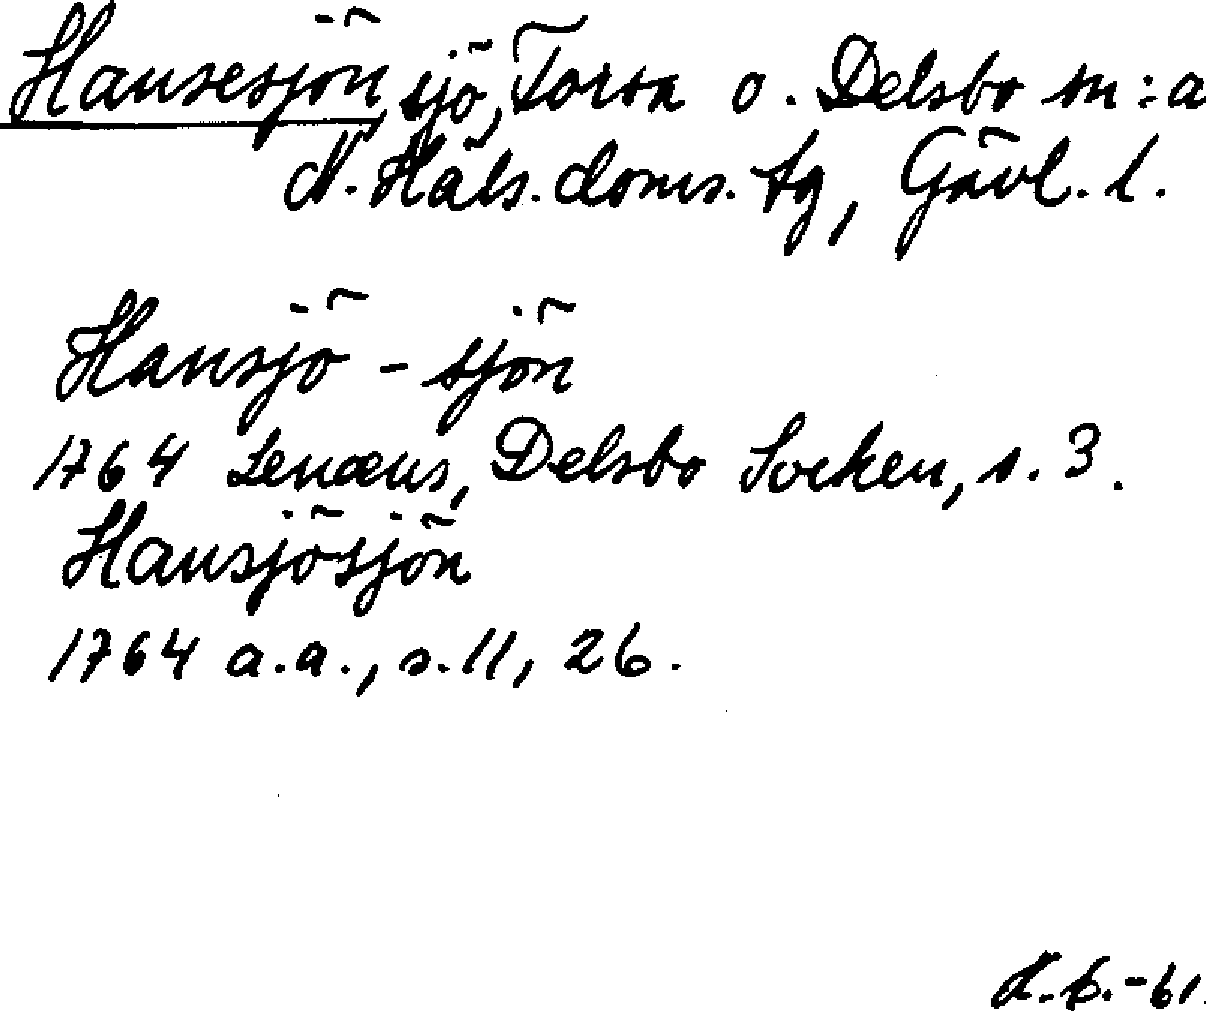 Hansesjön, sjö, Forsa o. Delsbo sn:a
N. Häls. doms. tg, Gävl. l.
Hansjö-sjön
1764 Lenæus, Delsbo Socken, s. 3.
Hansjösjön
1764 a.a., s. 11, 26.